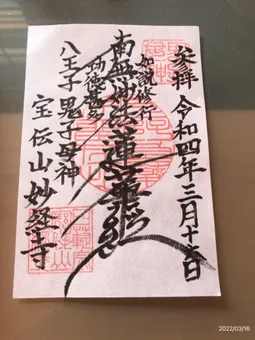 奉拝 令和四年三月十六日
如説修行
南無妙法蓮華経
功徳甚多
八王子 鬼子母神
宝伝山 妙経寺
2022/03/16